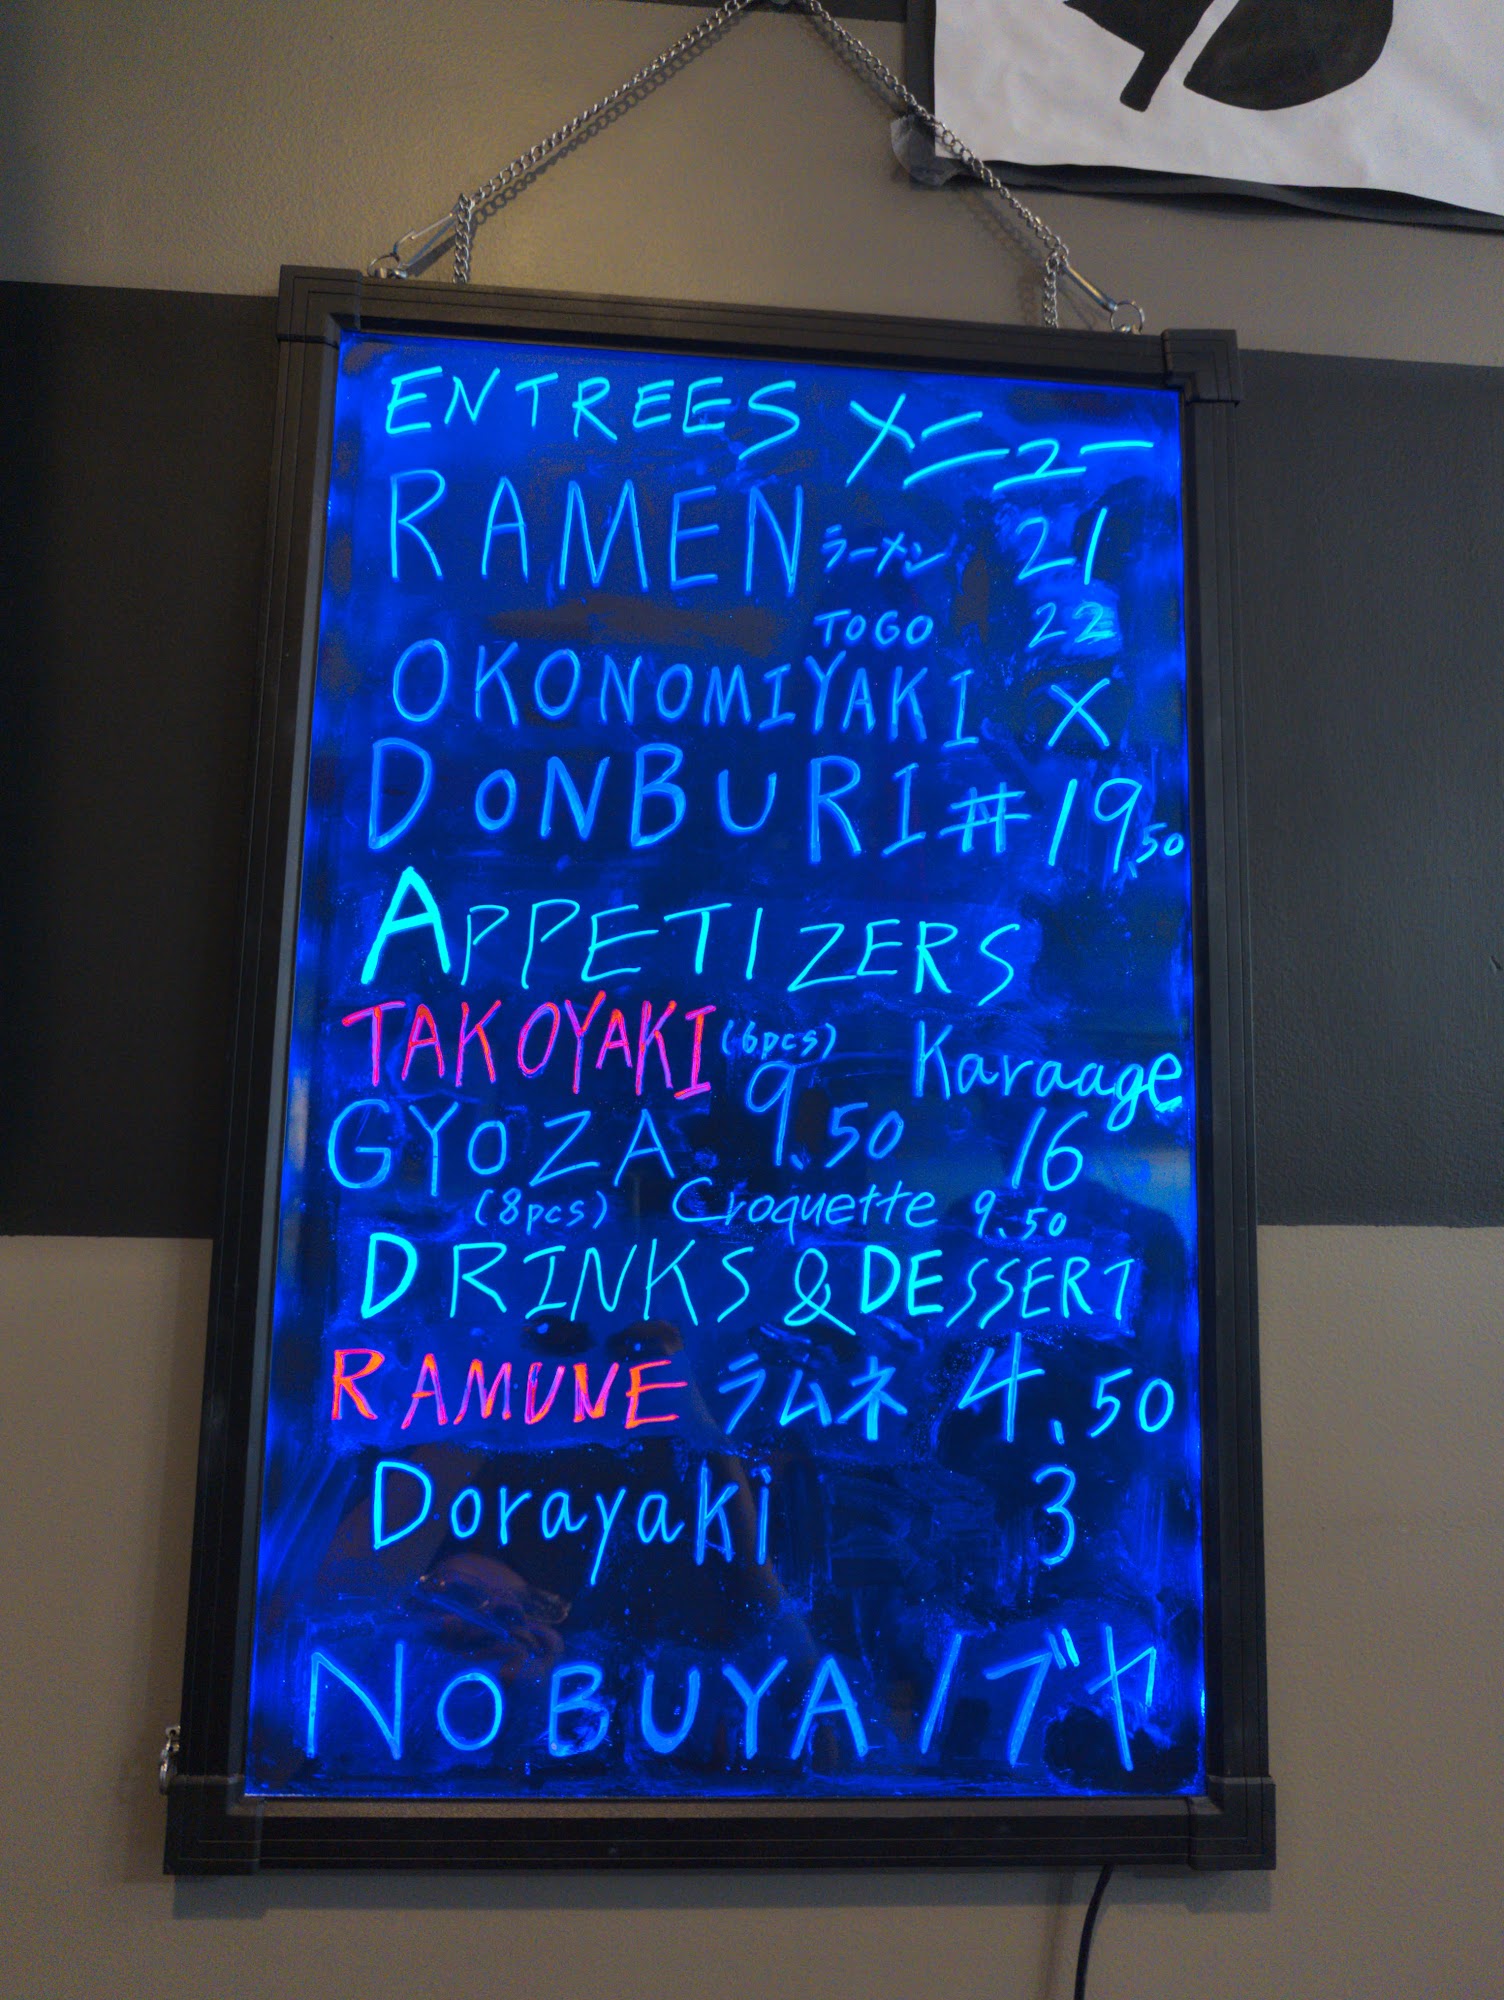 ENTREES メニュー
RAMEN ラーメン 21
TOGO 22
OKONOMIYAKI X
DONBURI # 19.50
APPETIZERS
TAKOYAKI (6pcs) Karaage
GYOZA 9.50 16
(8pcs) Croquette 9.50
DRINKS & DESSERT
RAMUNE ラムネ 4.50
Dorayaki 3
NOBUYA ノブヤ